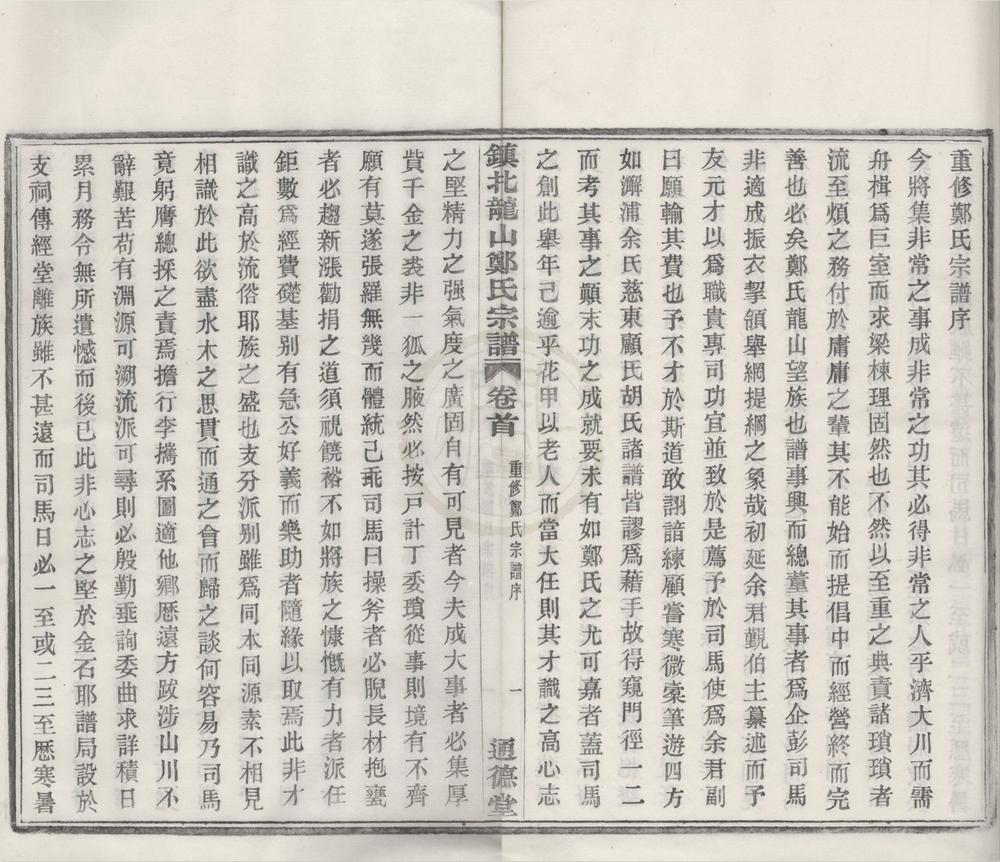 重修鄭氏宗譜序
今將集非常之事成非常之功其必得非常之人乎濟大川而需
舟楫爲巨室而求梁棟理固然也不然以至重之典責諸瑣瑣者
流至煩之務付於庸庸之輩其不能始而提倡中而經營終而完
善也必矣鄭氏龍山望族也譜事興而總董其事者爲企彭司馬
非適成振衣挈領舉網提綱之象哉初延余君覲伯主纂述而予
友元才以爲職貴專司功宜並致於是薦予於司馬使爲余君副
曰願輸其費也予不才於斯道敢詡諳練顧嘗寒微橐筆遊四方
如澥浦余氏慈東顧氏胡氏諸譜皆謬爲藉手故得窺門徑一二
而考其事之顚末功之成就要未有如鄭氏之尤可嘉者蓋司馬
之創此舉年己逾乎花甲以老人而當大任則其才識之高心志
鎮北龍山鄭氏宗譜 卷首 重修鄭氏宗譜序 一 通德堂
之堅精力之强氣度之廣固自有可見者今夫成大事者必集厚
貲千金之裘非一狐之腋然必按戸計丁委瑣從事則境有不齊
願有莫遂張羅無幾而體統己乖司馬曰操斧者必睨長材抱甕
者必趨新漲勸捐之道須視饒裕不如將族之慷慨有力者派任
鉅數爲經費礎基别有急公好義而樂助者隨緣以取焉此非才
識之高於流俗耶族之盛也支分派别雖爲同本同源素不相見
相識於此欲盡水木之思貫而通之會而歸之談何容易乃司馬
竟躬膺總採之責焉擔行李攜系圖適他鄉歷遠方跋涉山川不
辭艱苦苟有淵源可溯流派可尋則必殷勤垂詢委曲求詳積日
累月務令無所遺憾而後已此非心志之堅於金石耶譜局設於
支祠傳經堂離族雖不甚遠而司馬日必一至或二三至歷寒暑